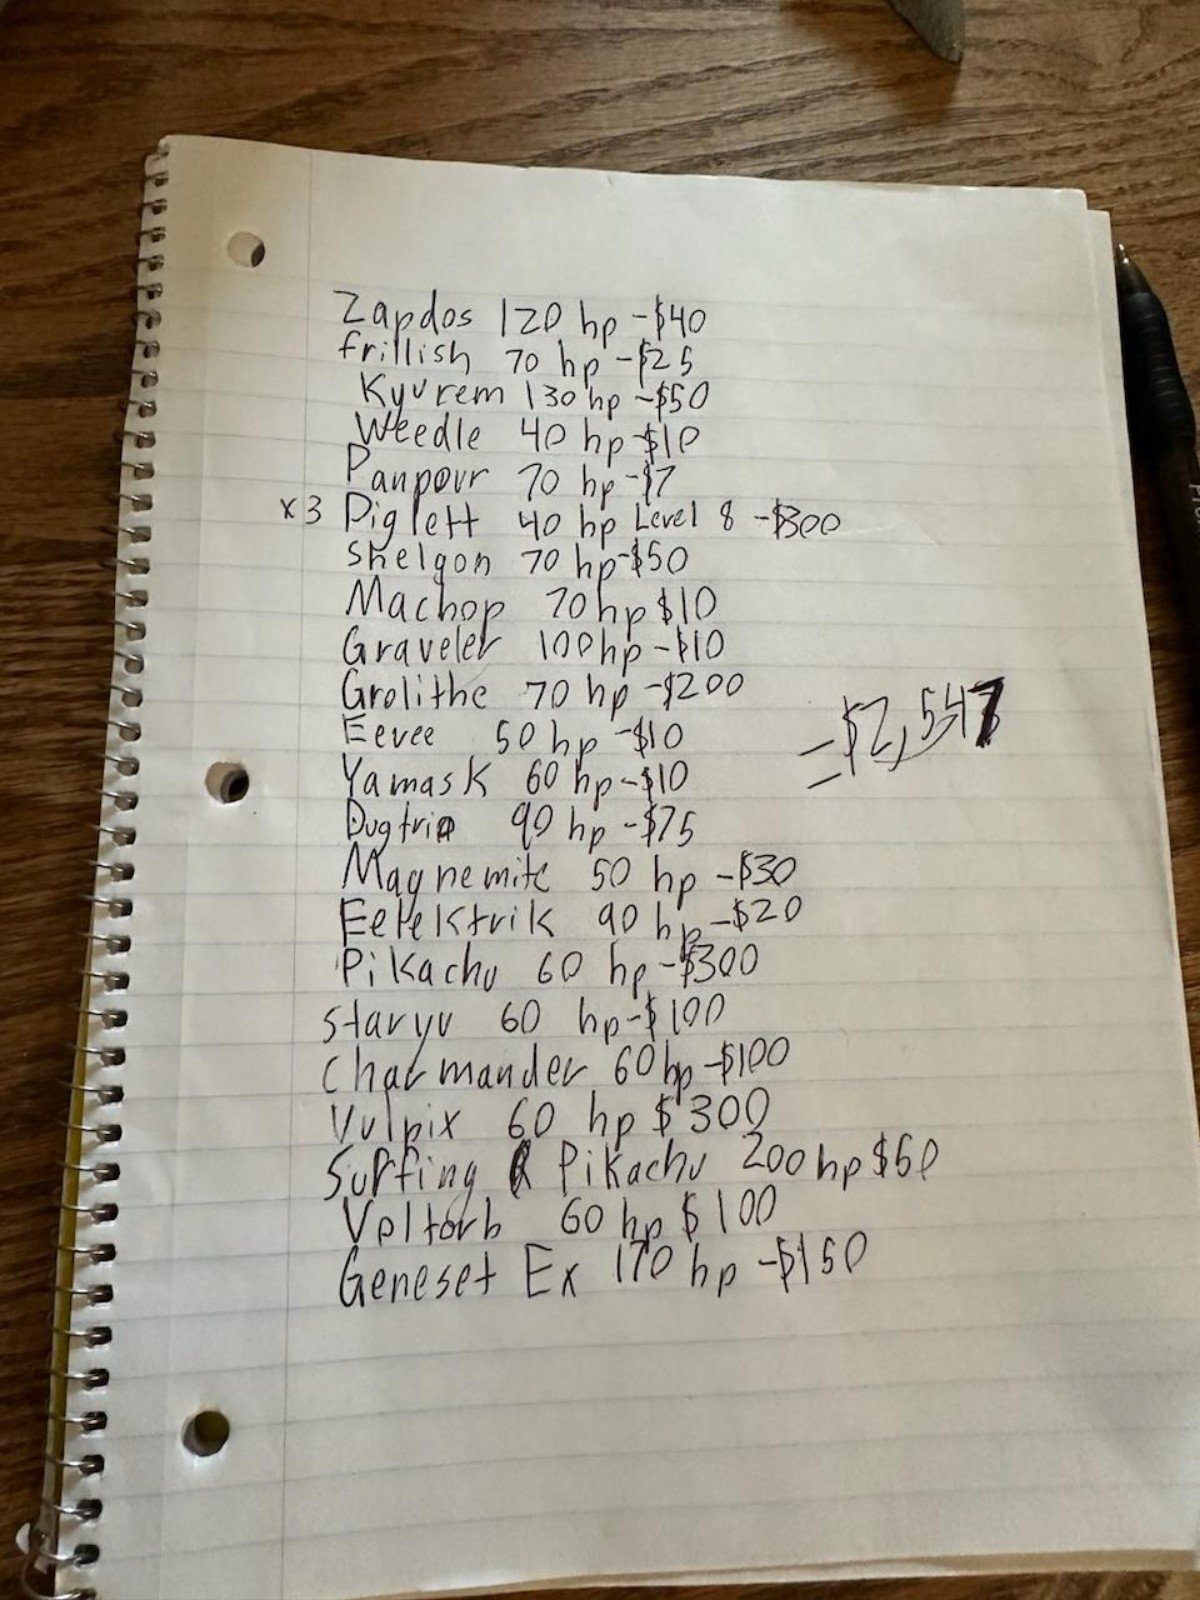 Zapdos 120 hp -$40
frillish 70 hp -$25
Kyurem 130 hp -$50
Weedle 40 hp -$10
Panpour 70 hp -$7
x3 Diglett 40 hp Level 8 -$300
Shelgon 70 hp -$50
Machop 70 hp $10
Graveler 100 hp -$10
Grolithe 70 hp -$200
Eevee 50 hp -$10
Yamask 60 hp -$10
Dugtrio 90 hp -$75
Magnemite 50 hp -$30
Eelektrik 90 hp -$20
Pikachu 60 hp -$300
Staryu 60 hp -$100
Charmander 60 hp -$100
Vulpix 60 hp $300
Surfing Pikachu 200 hp $60
Voltorb 60 hp $100
Geneset Ex 170 hp -$150
=$2,547